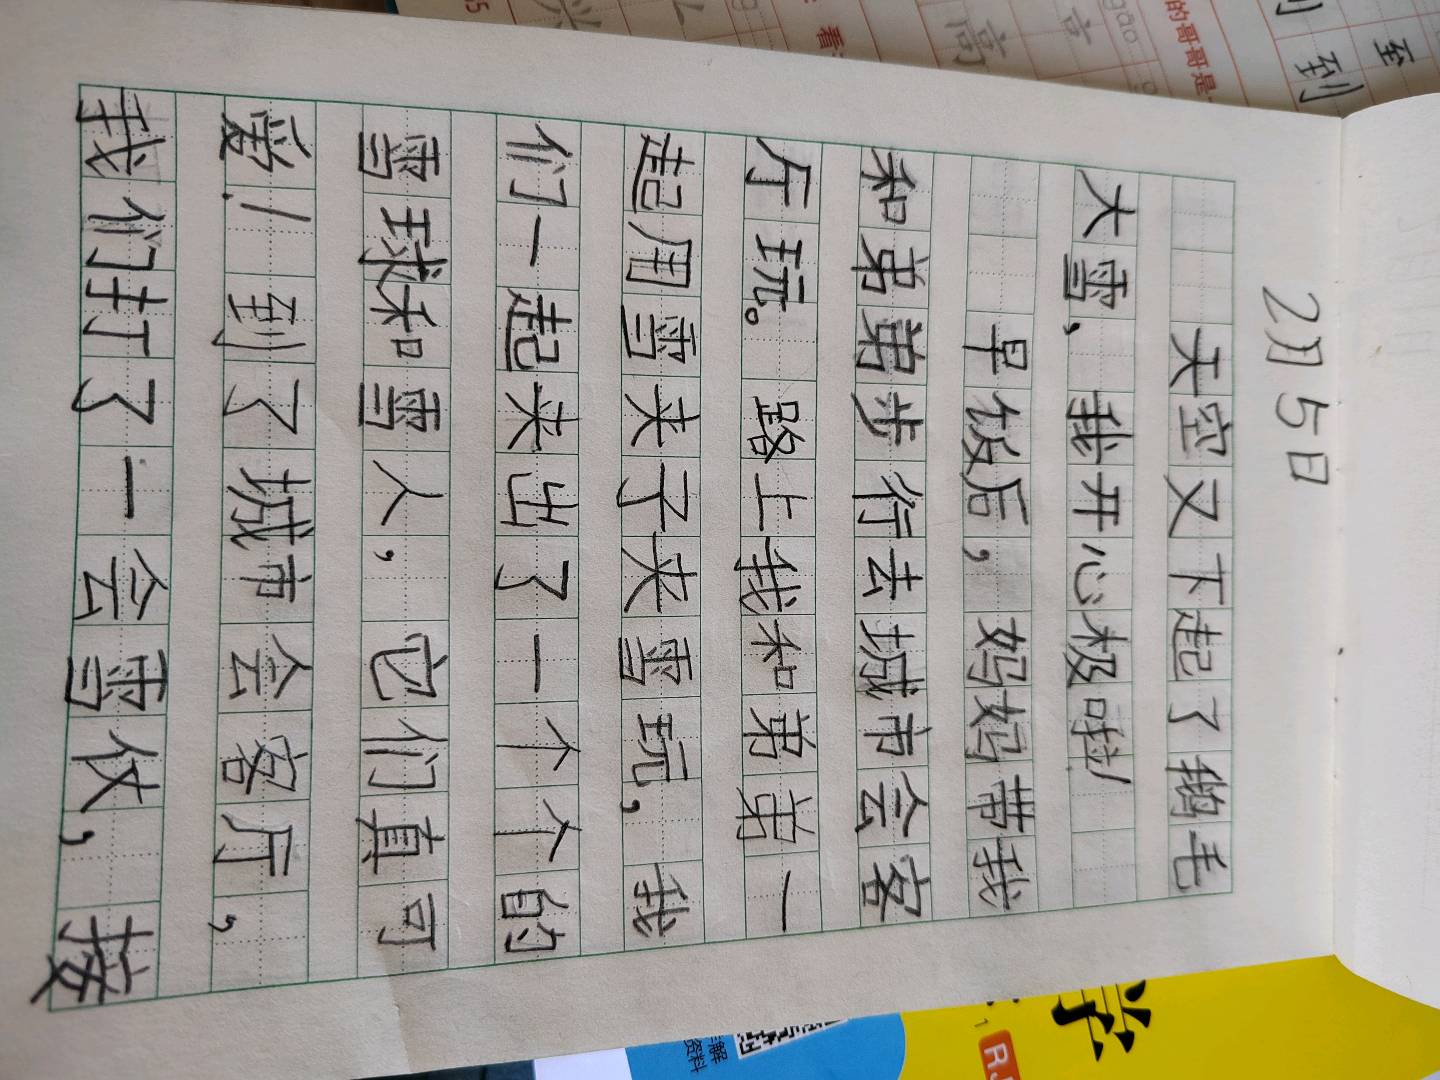 2月5日
天空又下起了鹅毛
大雪，我开心极啦！
早饭后，妈妈带我
和弟弟步行去城市会客
厅玩。路上我和弟弟一
起用雪夹子夹雪玩，我
们一起来出了一个个的
雪球和雪人，它们真可
爱！到了城市会客厅，
我们打了一会雪仗，接
的哥哥是
看
高
gao
到
至
学
解
资料
RJ